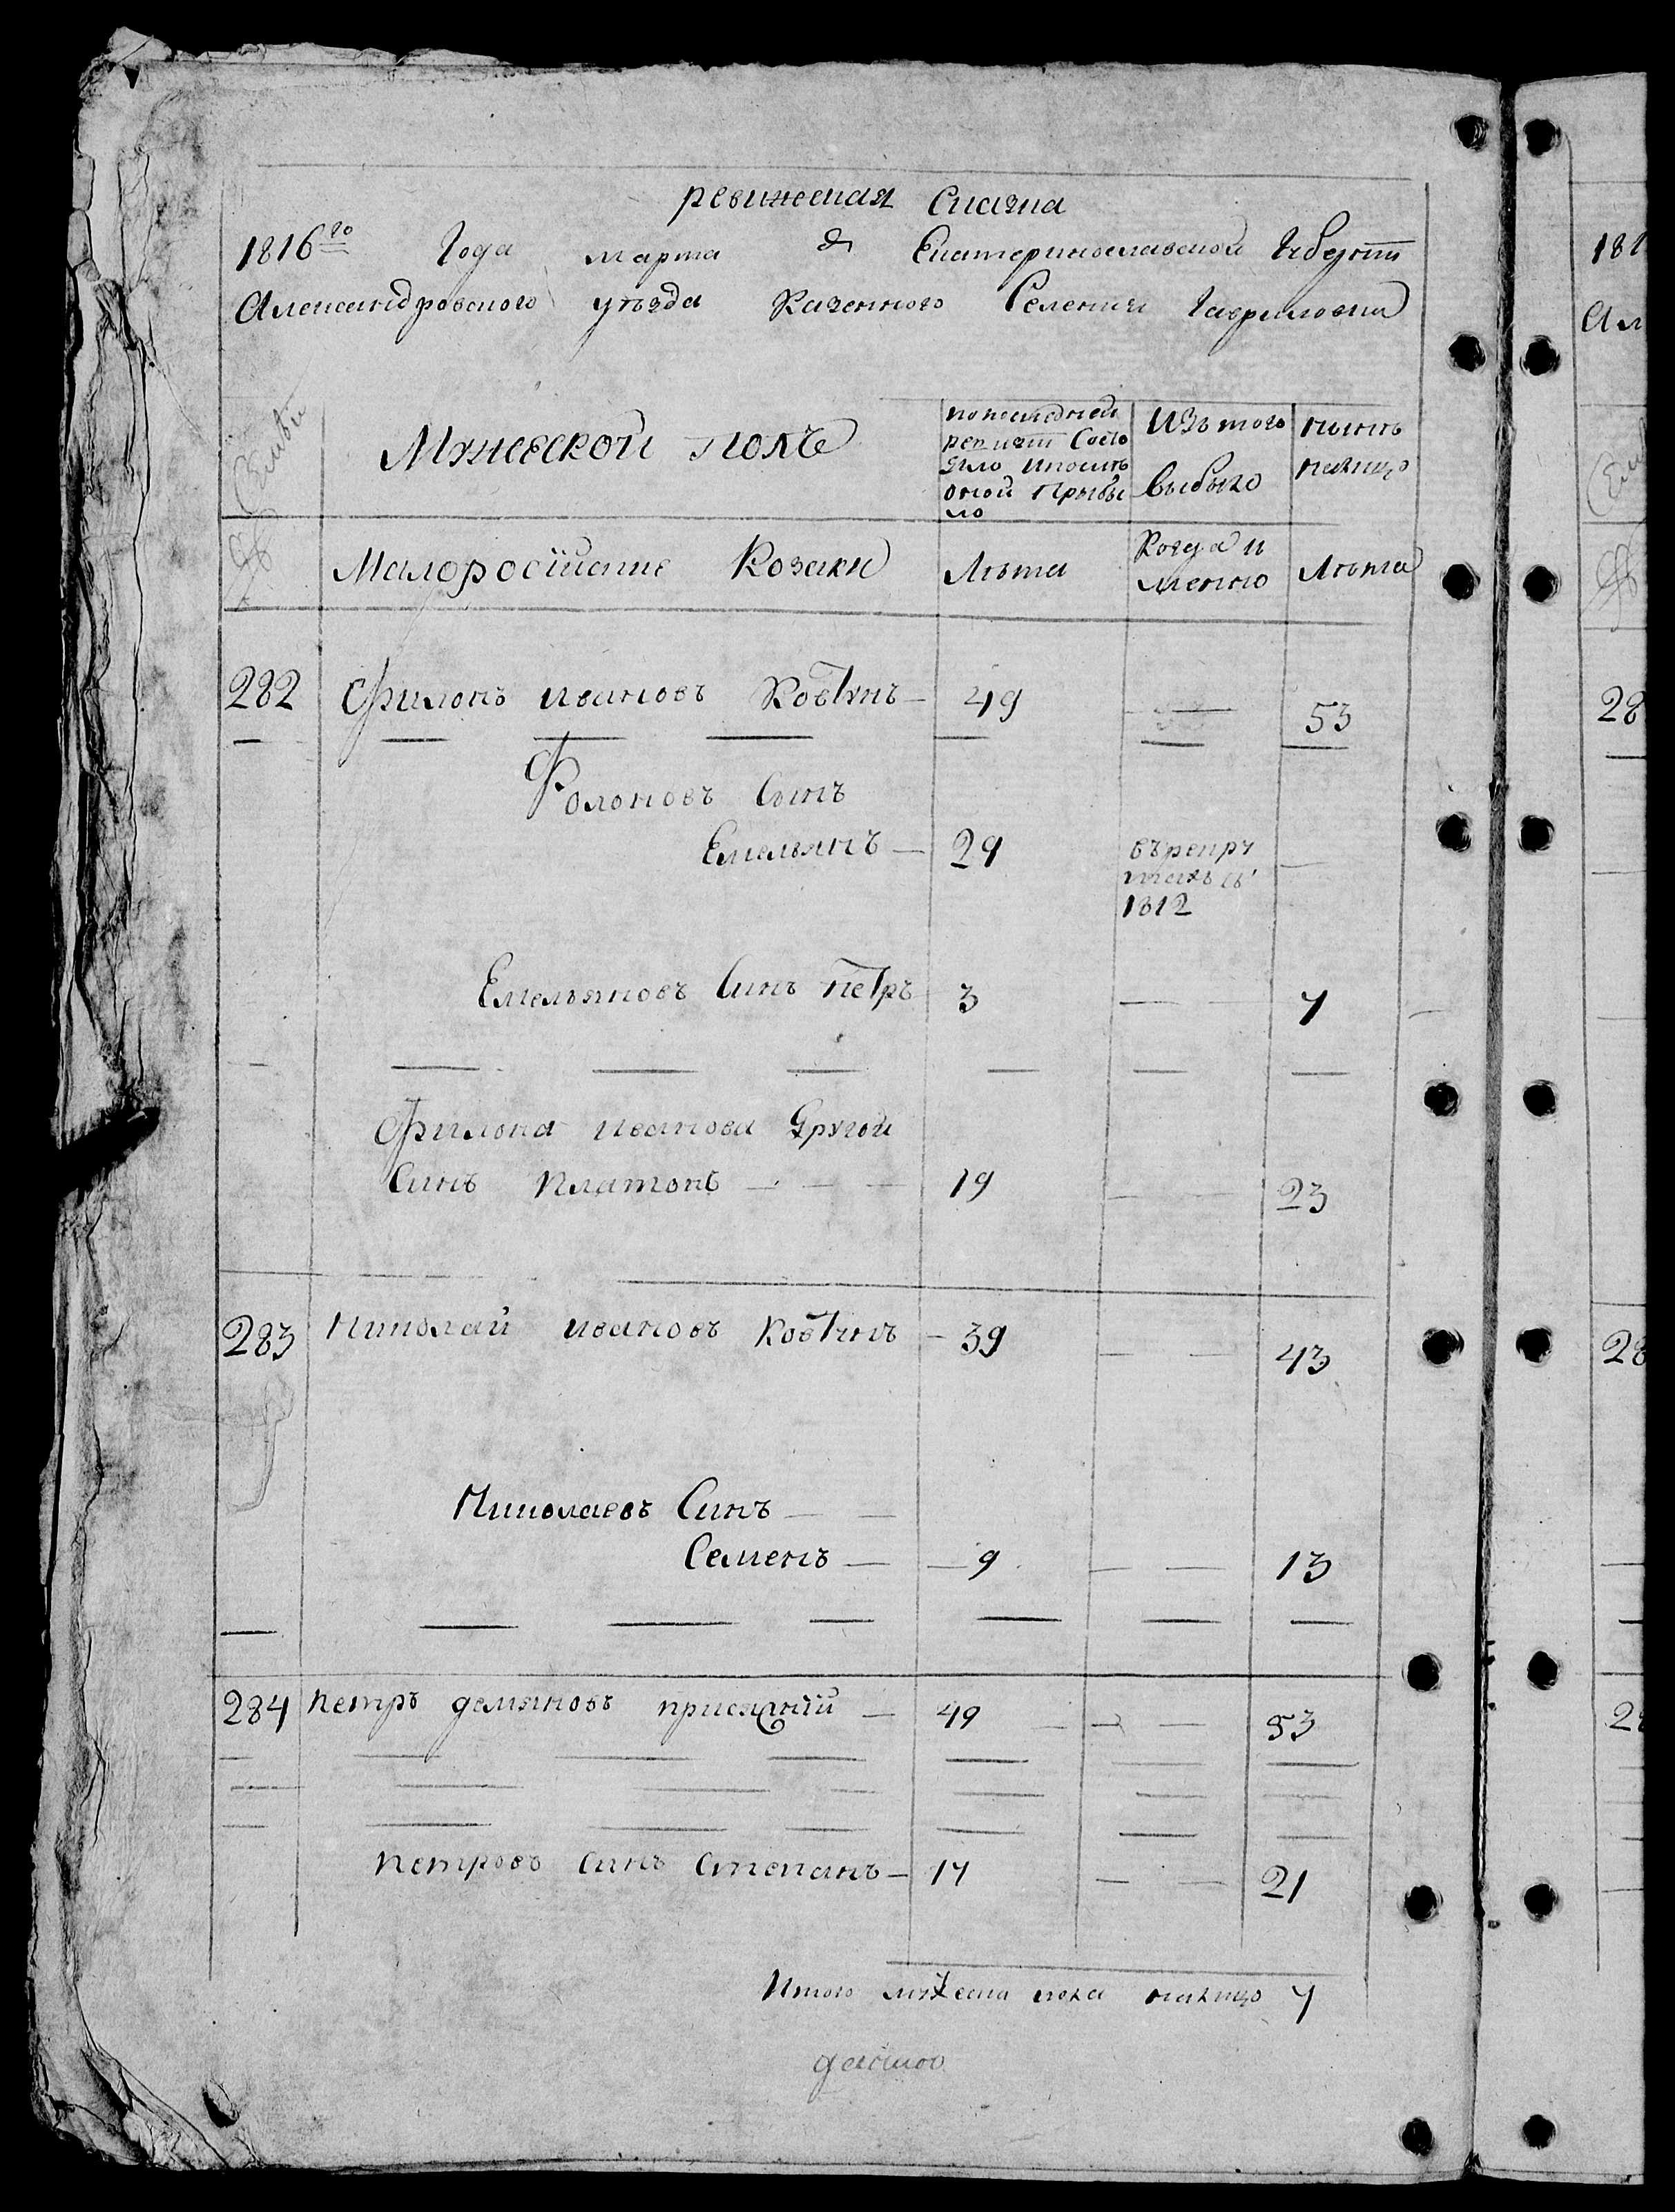 ревижская Сказка
1816го Года марта д Екатеринославской Губерт
Александровского уѣзда Казенного Селения Гавриловки
Семьи
Мужеской полъ
попоследней
рев изіи Состо
яло ипослѣ
оной Прибы
ло
Изъ того
выбыло
нынѣ
налицо
Малоросіиские Козаки
Лѣта
Когда и
менно
Лѣта
282 Филонъ ивановъ Ковтунъ 49 53
Фолоновъ Сынъ
Емельянъ 29
въ рекру
тахъ съ
1812
Емельяновъ Синъ Петръ 3 7
Филона иванова Другой
Синъ Платонъ 19 23
283 Николай ивановъ Ковтунъ 39 43
Николаевъ Синъ
Семенъ 9 13
284 Петръ демяновъ 49 53
Петровъ синъ Степанъ 17 21
Итого мужеска пола налицо 7